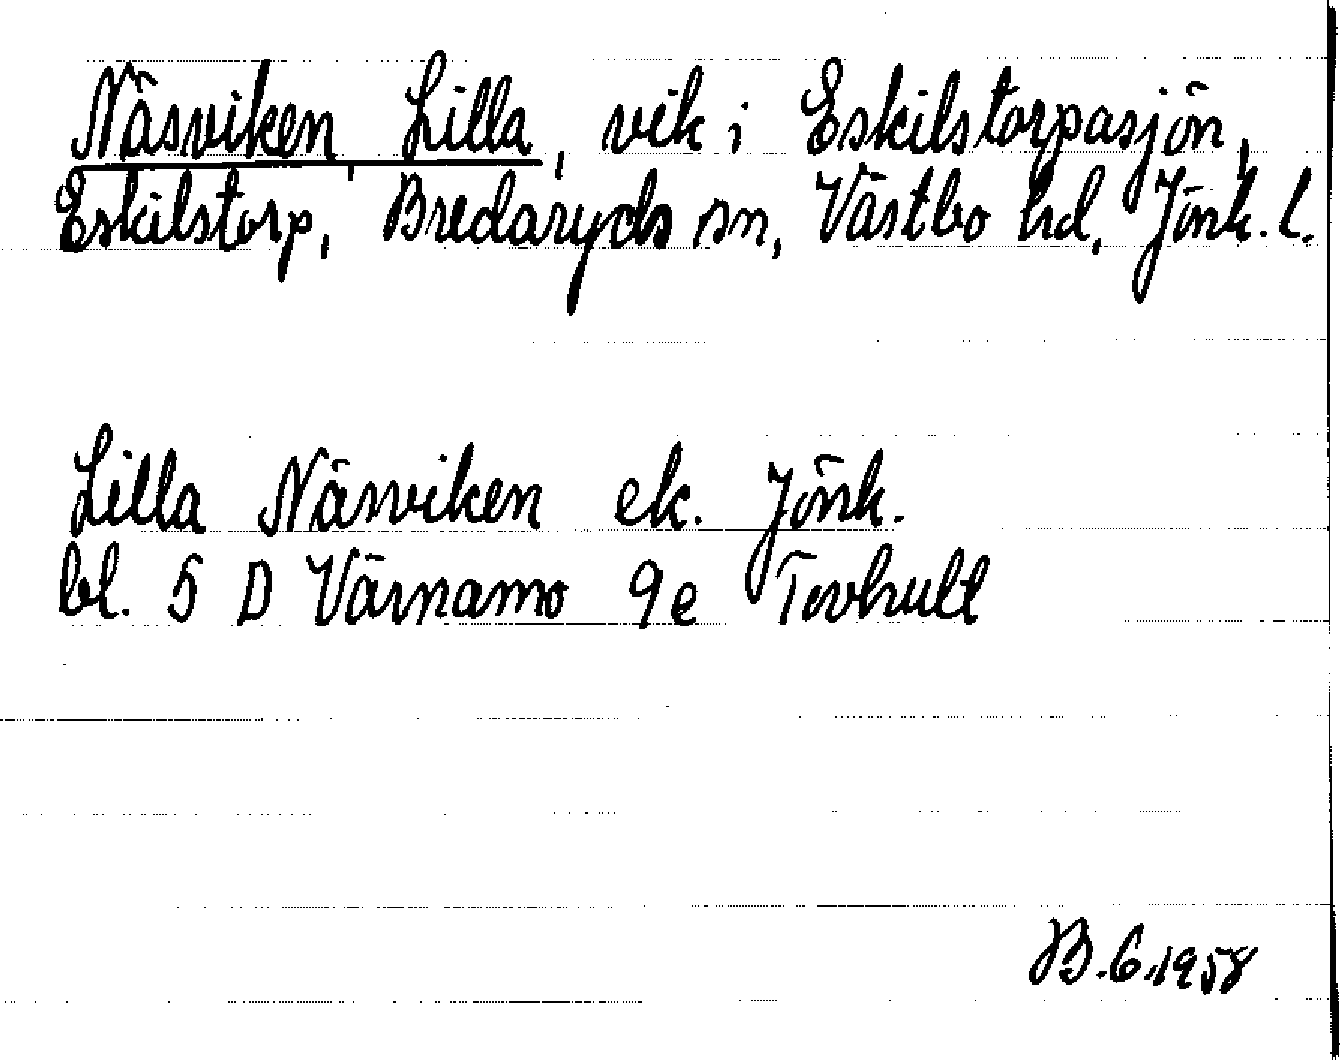 Näsviken, Lilla, vik i Eskilstorpasjön,
Eskilstorp, Bredaryds sn, Västbo hd, Jönk. l.
Lilla Näsviken ek. Jönk.
bl. 5 D Värnamo 9e Tovhult
B.G.1958